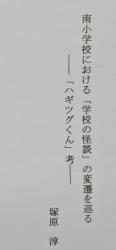 南小学校における「学校の怪談」の変遷を巡る
――「ハギツグくん」考――
塚原 淳